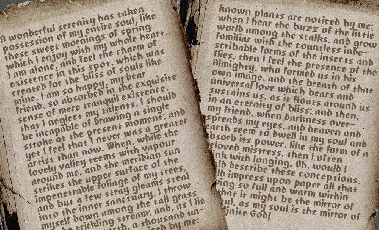 A wonderful serenity has taken
possession of my entire soul, like
these sweet mornings of spring
which I enjoy with my whole heart.
I am alone, and feel the charm of
existence in this spot, which was
created for the bliss of souls like
mine. I am so happy, my dear
friend, so absorbed in the exquisite
sense of mere tranquil existence,
that I neglect my talents. I should
be incapable of drawing a single
stroke at the present moment; and
yet I feel that I never was a greater
artist than now. When, while the
lovely valley teems with vapour
around me, and the meridian sun
strikes the upper surface of the
impenetrable foliage of my trees,
and but a few stray gleams steal
into the inner sanctuary, I throw
myself down among the tall grass
trickling stream; and, as I lie
earth, a thousand un-
by me:
known plants are noticed by me:
when I hear the buzz of the little
world among the stalks, and grow
familiar with the countless inde-
scribable forms of the insects and
flies, then I feel the presence of the
Almighty, who formed us in his
own image, and the breath of that
universal love which bears and
sustains us, as it floats around us
in an eternity of bliss; and then,
my friend, when darkness over-
spreads my eyes, and heaven and
earth seem to dwell in my soul and
absorb its power, like the form of a
loved mistress, then I often
with longing, Oh, would I
describe these conceptions,
impress upon paper all that
so full and warm within
it might be the mirror of
as my soul is the mirror of
God!